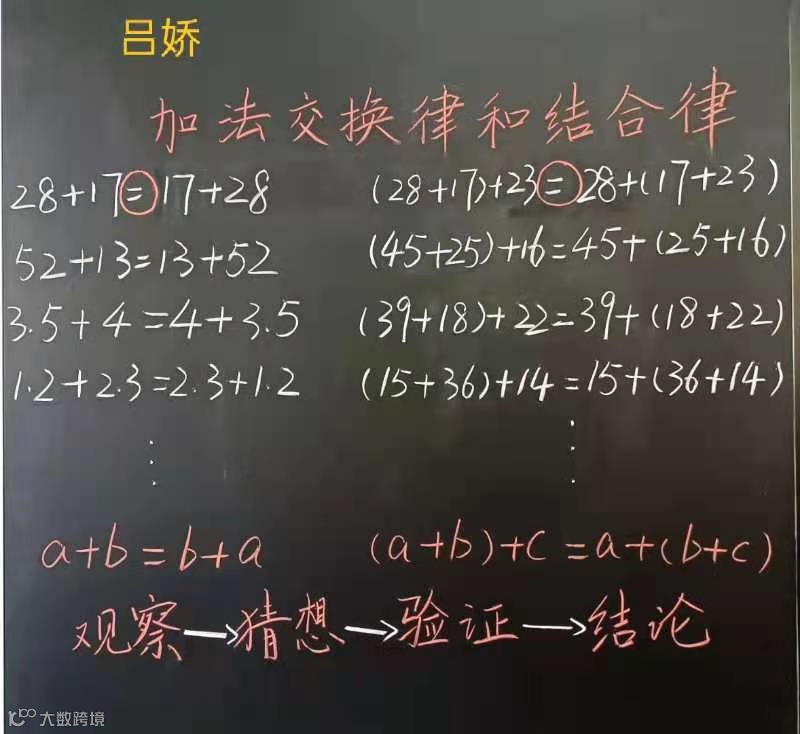 吕娇
加法交换律和结合律
28+17=17+28 (28+17)+23=28+(17+23)
52+13=13+52 (45+25)+16=45+(25+16)
3.5+4=4+3.5 (39+18)+22=39+(18+22)
1.2+2.3=2.3+1.2 (15+36)+14=15+(36+14)
⋮ ⋮
a+b=b+a (a+b)+c=a+(b+c)
观察→猜想→验证→结论
大数跨境